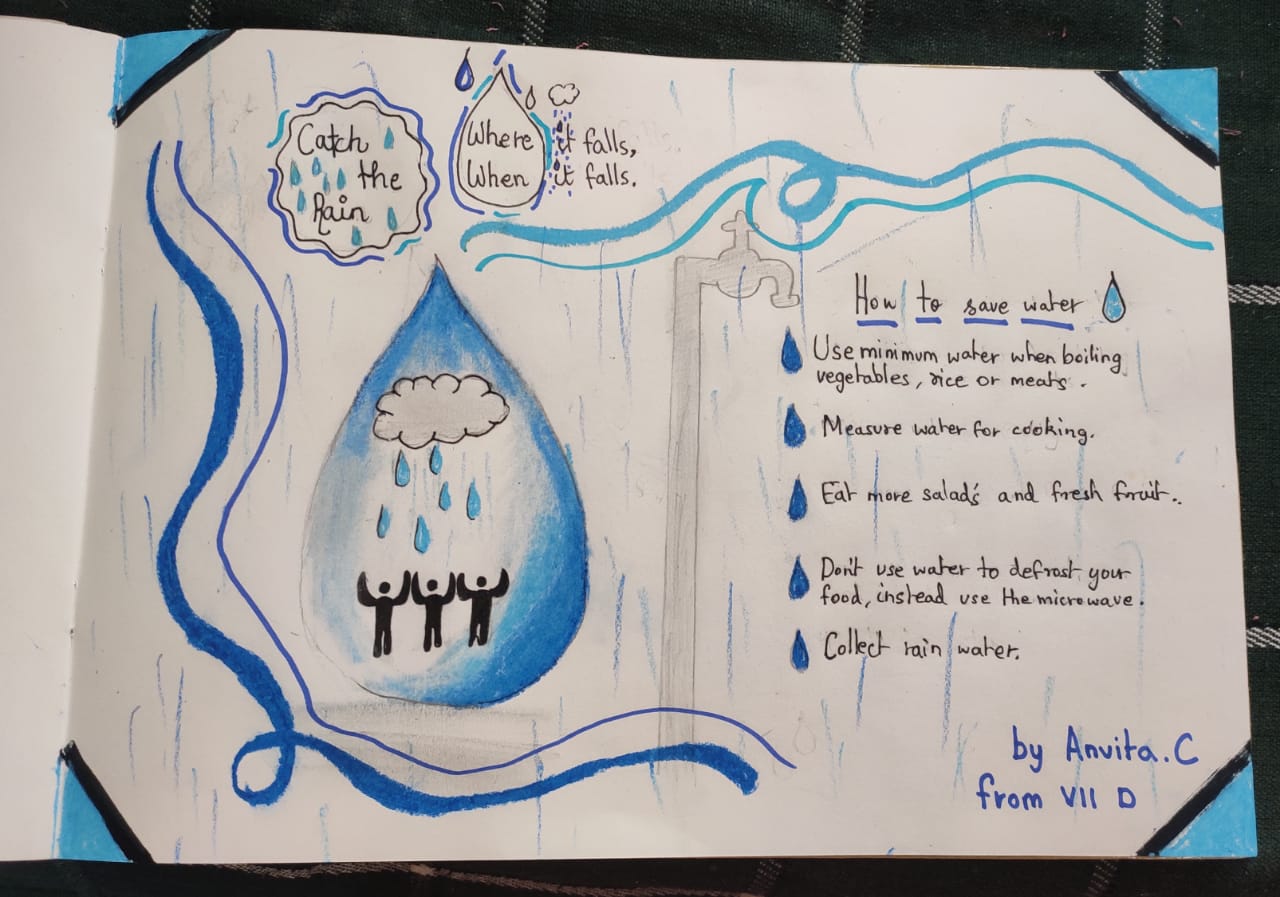 Catch
the
Rain
Where it falls,
When it falls.
How to save water
Use minimum water when boiling
vegetables, rice or meats.
Measure water for cooking.
Eat more salads and fresh fruit..
Don't use water to defrost your
food, instead use the microwave.
Collect rain water.
by Anvita.C
from VII D